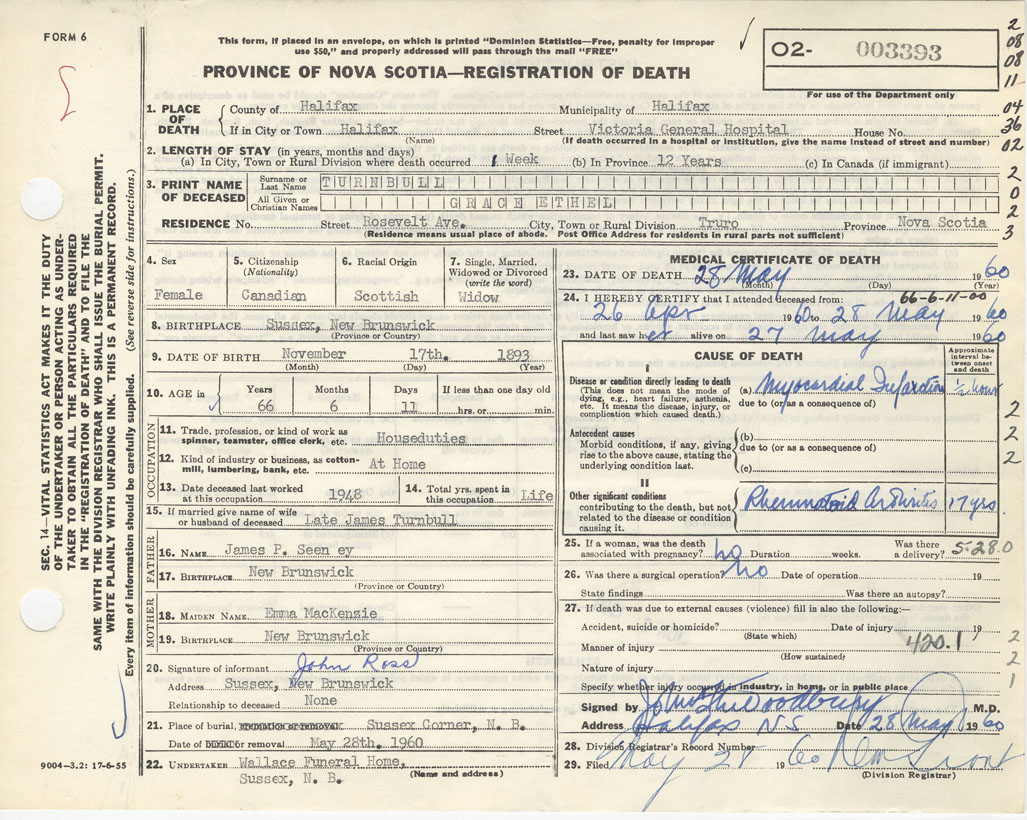 FORM 6
This form, if placed in an envelope, on which is printed "Dominion Statistics—Free, penalty for improper
use $50," and properly addressed will pass through the mail "FREE"
O2- 003393
For use of the Department only
PROVINCE OF NOVA SCOTIA—REGISTRATION OF DEATH
2
08
08
11
04
36
02
2
0
2
3
1. PLACE OF DEATH
County of Halifax Municipality of Halifax
If in City or Town Halifax Street Victoria General Hospital House No.
(Name) (If death occurred in a hospital or institution, give the name instead of street and number)
2. LENGTH OF STAY (in years, months and days)
(a) In City, Town or Rural Division where death occurred 1 Week (b) In Province 12 Years (c) In Canada (if immigrant)
3. PRINT NAME OF DECEASED
Surname or Last Name TURNBULL
All Given or Christian Names GRACE ETHEL
RESIDENCE No. Street Rosevelt Ave. City, Town or Rural Division Truro Province Nova Scotia
(Residence means usual place of abode. Post Office Address for residents in rural parts not sufficient)
4. Sex
Female
5. Citizenship
(Nationality)
Canadian
6. Racial Origin
Scottish
7. Single, Married,
Widowed or Divorced
(write the word)
Widow
8. BIRTHPLACE Sussex, New Brunswick
(Province or Country)
9. DATE OF BIRTH November 17th. 1893
(Month) (Day) (Year)
10. AGE in
Years Months Days If less than one day old
66 6 11 hrs. or min.
OCCUPATION
11. Trade, profession, or kind of work as
spinner, teamster, office clerk, etc. Houseduties
12. Kind of industry or business, as cotton-
mill, lumbering, bank, etc. At Home
13. Date deceased last worked
at this occupation 1948
14. Total yrs. spent in
this occupation Life
15. If married give name of wife
or husband of deceased Late James Turnbull
FATHER
16. NAME James P. Seen ey
17. BIRTHPLACE New Brunswick
(Province or Country)
MOTHER
18. MAIDEN NAME Emma MacKenzie
19. BIRTHPLACE New Brunswick
(Province or Country)
20. Signature of informant John Ross
Address Sussex, New Brunswick
Relationship to deceased None
21. Place of burial, cremation or removal Sussex Corner, N. B.
Date of burial or removal May 28th. 1960
22. UNDERTAKER Wallace Funeral Home,
Sussex, N. B. (Name and address)
MEDICAL CERTIFICATE OF DEATH
23. DATE OF DEATH 28 May 1960
(Month) (Day) (Year)
24. I HEREBY CERTIFY that I attended deceased from: 66-6-11-00
26 Apr 1960 to 28 May 1960
and last saw her alive on 27 May 1960
CAUSE OF DEATH
Approximate
interval be-
tween onset
and death
I
Disease or condition directly leading to death
(This does not mean the mode of
dying, e.g., heart failure, asthenia,
etc. It means the disease, injury, or
complication which caused death.)
(a) Myocardial Infarction ½ hour
due to (or as a consequence of)
Antecedent causes
Morbid conditions, if any, giving
rise to the above cause, stating the
underlying condition last.
(b)
due to (or as a consequence of)
(c)
II
Other significant conditions
contributing to the death, but not
related to the disease or condition
causing it.
Rheumatoid Arthritis 17 yrs
2
2
2
25. If a woman, was the death
associated with pregnancy? no Duration weeks. Was there
a delivery? 5-28.0
26. Was there a surgical operation? no Date of operation 19
State findings Was there an autopsy?
27. If death was due to external causes (violence) fill in also the following:—
Accident, suicide or homicide? Date of injury 19
(State which)
420.1
Manner of injury
(How sustained)
Nature of injury
2
2
1
Specify whether injury occurred in industry, in home, or in public place
Signed by Woodbury M.D.
Address Halifax N S Date 28 May 1960
28. Division Registrar's Record Number
29. Filed May 28 1960
(Division Registrar)
SEC. 14—VITAL STATISTICS ACT MAKES IT THE DUTY
OF THE UNDERTAKER OR PERSON ACTING AS UNDER-
TAKER TO OBTAIN ALL THE PARTICULARS REQUIRED
IN THE "REGISTRATION OF DEATH" AND TO FILE THE
SAME WITH THE DIVISION REGISTRAR WHO SHALL ISSUE THE BURIAL PERMIT.
WRITE PLAINLY WITH UNFADING INK. THIS IS A PERMANENT RECORD.
Every item of information should be carefully supplied. (See reverse side for instructions.)
9004—3.2: 17-6-55